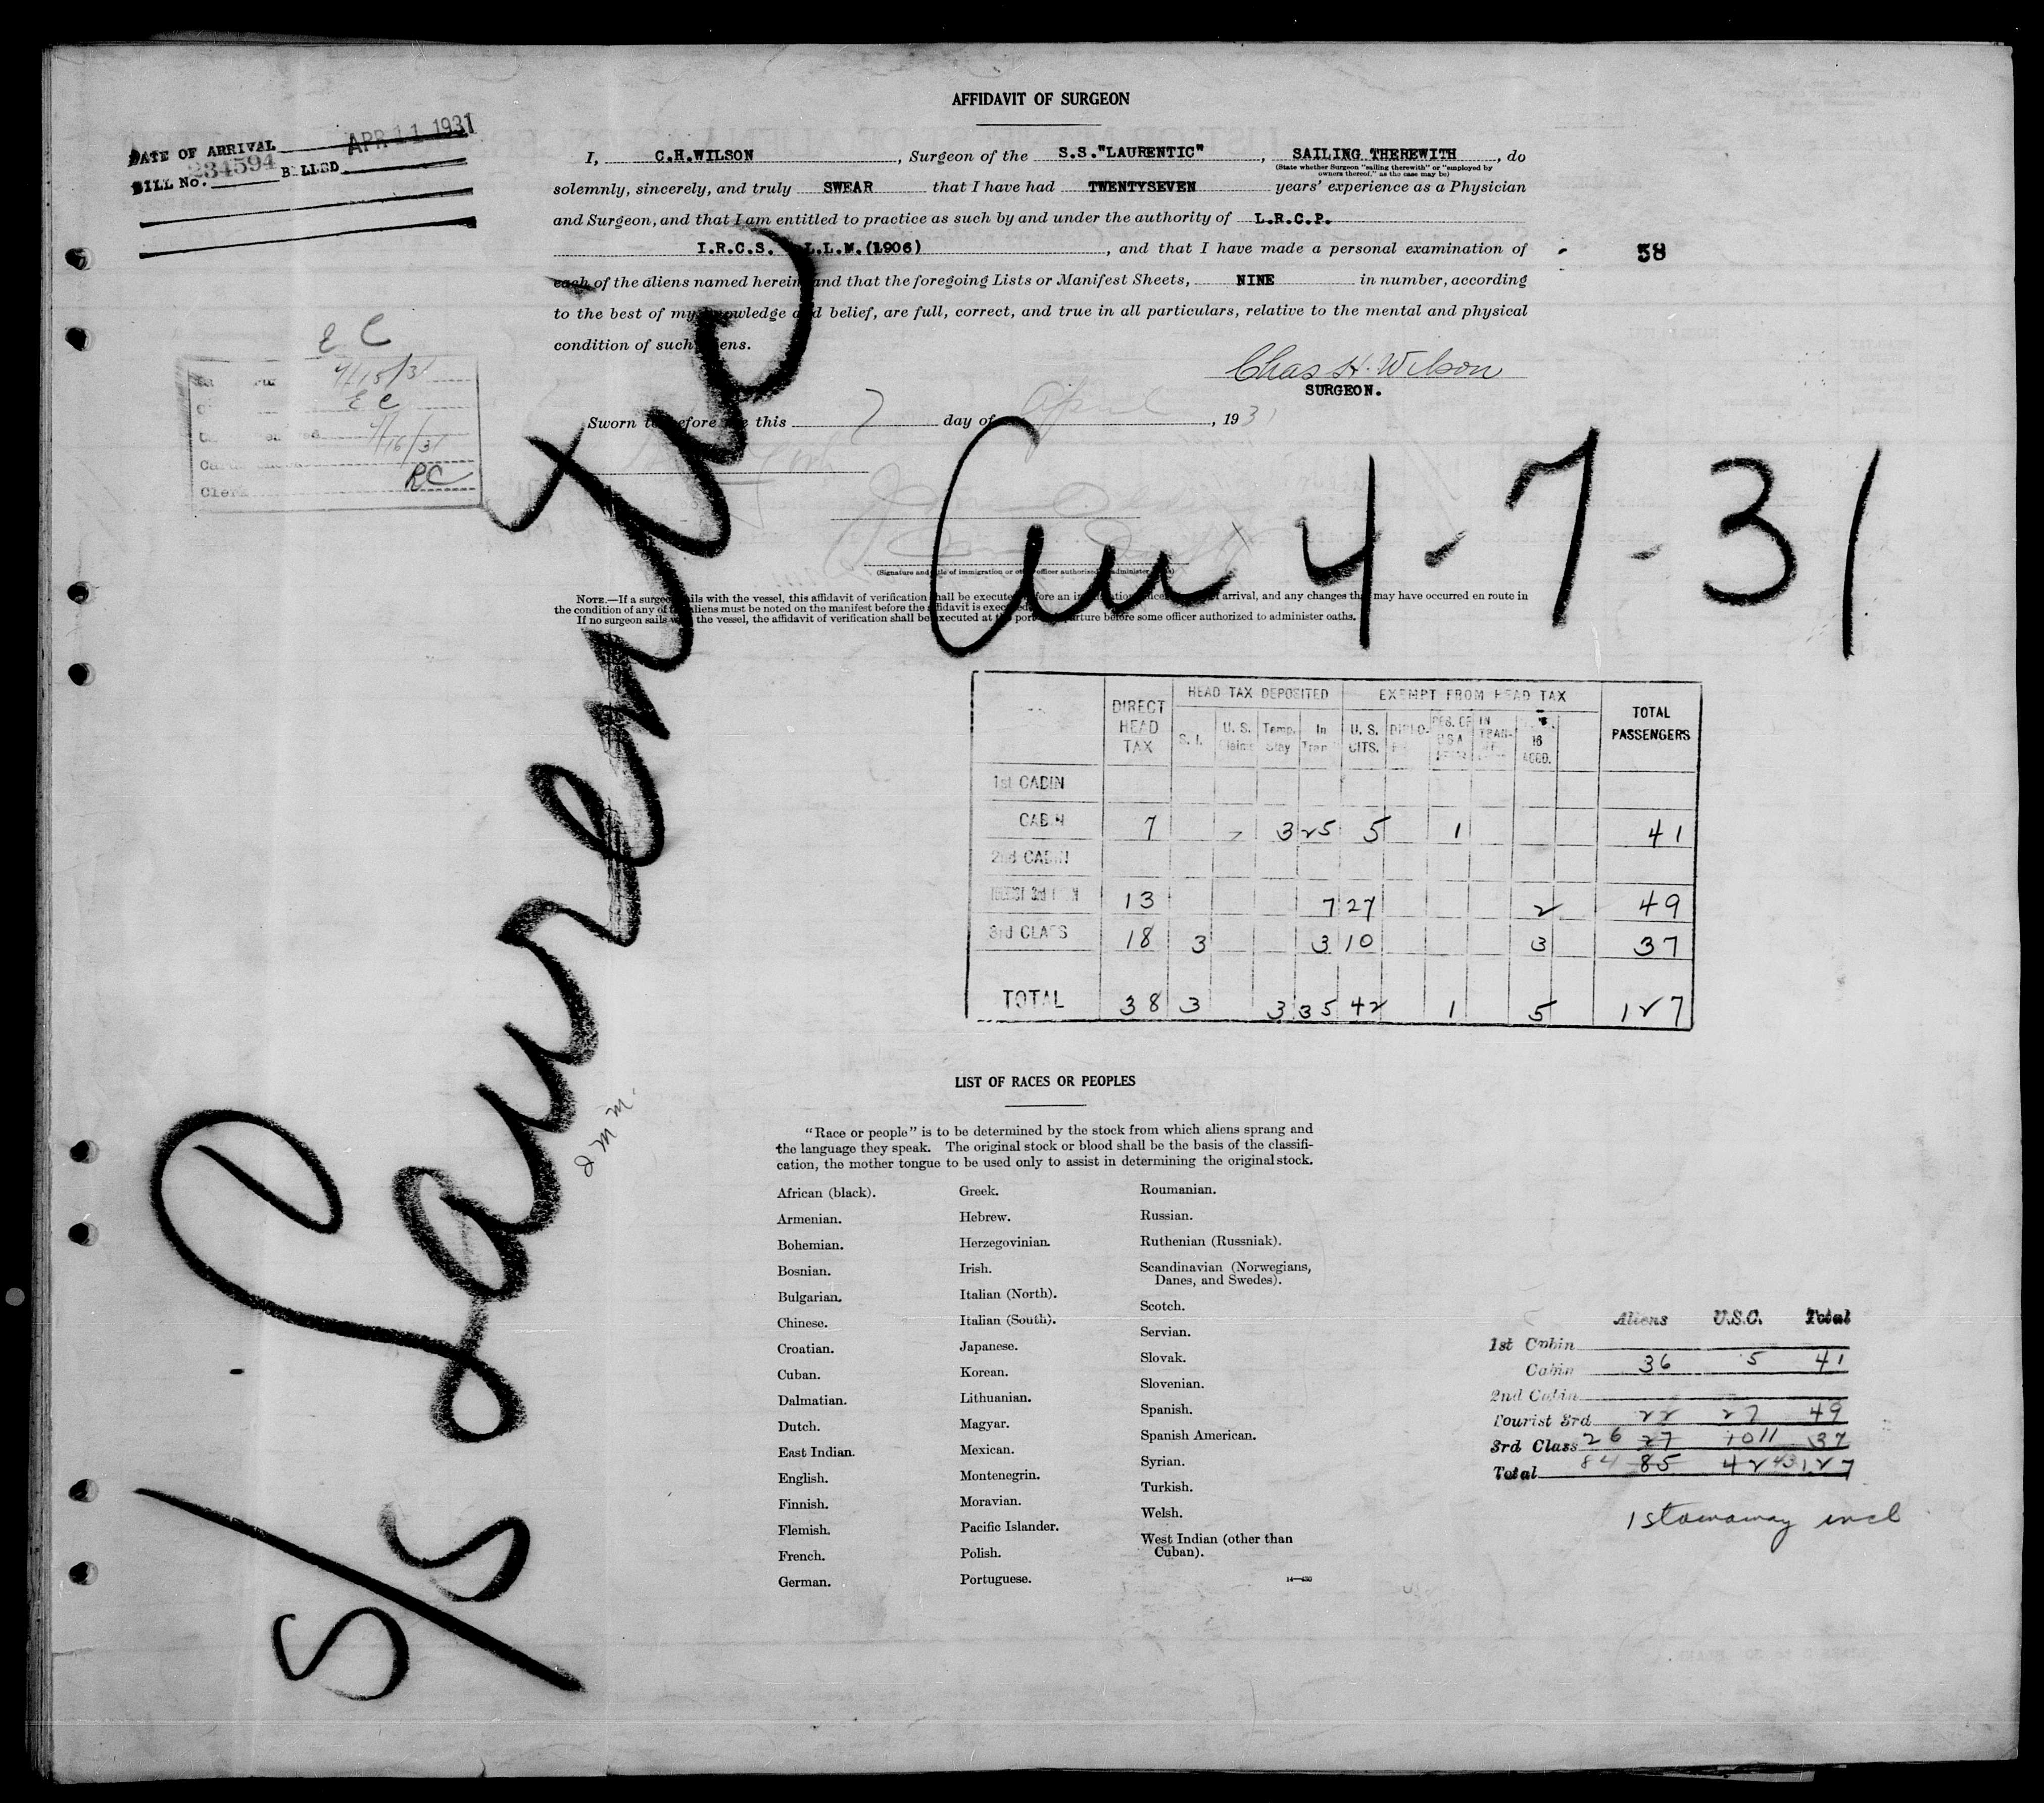 AFFIDAVIT OF SURGEON
DATE OF ARRIVAL APR 11 1931
BILL No. 234594 BILLED
I, C.H.WILSON, Surgeon of the S.S."LAURENTIC", SAILING THEREWITH, do
(State whether Surgeon "sailing therewith" or "employed by
owners thereof," as the case may be)
solemnly, sincerely, and truly SWEAR that I have had TWENTYSEVEN years' experience as a Physician
and Surgeon, and that I am entitled to practice as such by and under the authority of L.R.C.P.
I.R.C.S. L.L.M.(1906), and that I have made a personal examination of
58
each of the aliens named herein and that the foregoing Lists or Manifest Sheets, NINE in number, according
to the best of my knowledge and belief, are full, correct, and true in all particulars, relative to the mental and physical
condition of such aliens.
Chas H. Wilson
SURGEON.
Sworn to before me this 7 day of April, 1931
E C
4/15/31
E C
4/16/31
Clerk RC
(Signature and title of immigration or other officer authorized to administer oaths)
NOTE.—If a surgeon sails with the vessel, this affidavit of verification shall be executed before an immigration officer at port of arrival, and any changes that may have occurred en route in
the condition of any of the aliens must be noted on the manifest before the affidavit is executed.
If no surgeon sails with the vessel, the affidavit of verification shall be executed at the port of departure before some officer authorized to administer oaths.
S/S Laurentic
Arr 4-7-31
DIRECT HEAD TAX HEAD TAX DEPOSITED EXEMPT FROM HEAD TAX TOTAL PASSENGERS
S. I. U. S. Claims Temp. Stay In Tran U. S. CITS. IN TRAN- 16 ACCD.
1st CABIN
CABIN 7 3 25 5 1 41
2nd CABIN
TOURIST 3rd CABIN 13 7 27 2 49
3rd CLASS 18 3 3 10 3 37
TOTAL 38 3 3 35 42 1 5 127
LIST OF RACES OR PEOPLES
"Race or people" is to be determined by the stock from which aliens sprang and
the language they speak. The original stock or blood shall be the basis of the classifi-
cation, the mother tongue to be used only to assist in determining the original stock.
African (black).
Armenian.
Bohemian.
Bosnian.
Bulgarian.
Chinese.
Croatian.
Cuban.
Dalmatian.
Dutch.
East Indian.
English.
Finnish.
Flemish.
French.
German.
Greek.
Hebrew.
Herzegovinian.
Irish.
Italian (North).
Italian (South).
Japanese.
Korean.
Lithuanian.
Magyar.
Mexican.
Montenegrin.
Moravian.
Pacific Islander.
Polish.
Portuguese.
Roumanian.
Russian.
Ruthenian (Russniak).
Scandinavian (Norwegians,
Danes, and Swedes).
Scotch.
Servian.
Slovak.
Slovenian.
Spanish.
Spanish American.
Syrian.
Turkish.
Welsh.
West Indian (other than
Cuban).
Aliens U.S.C. Total
1st Cabin
Cabin 36 5 41
2nd Cabin
Tourist 3rd 22 27 49
3rd Class 26 27 10 11 37
Total 84 85 42 43 127
1 stowaway incl